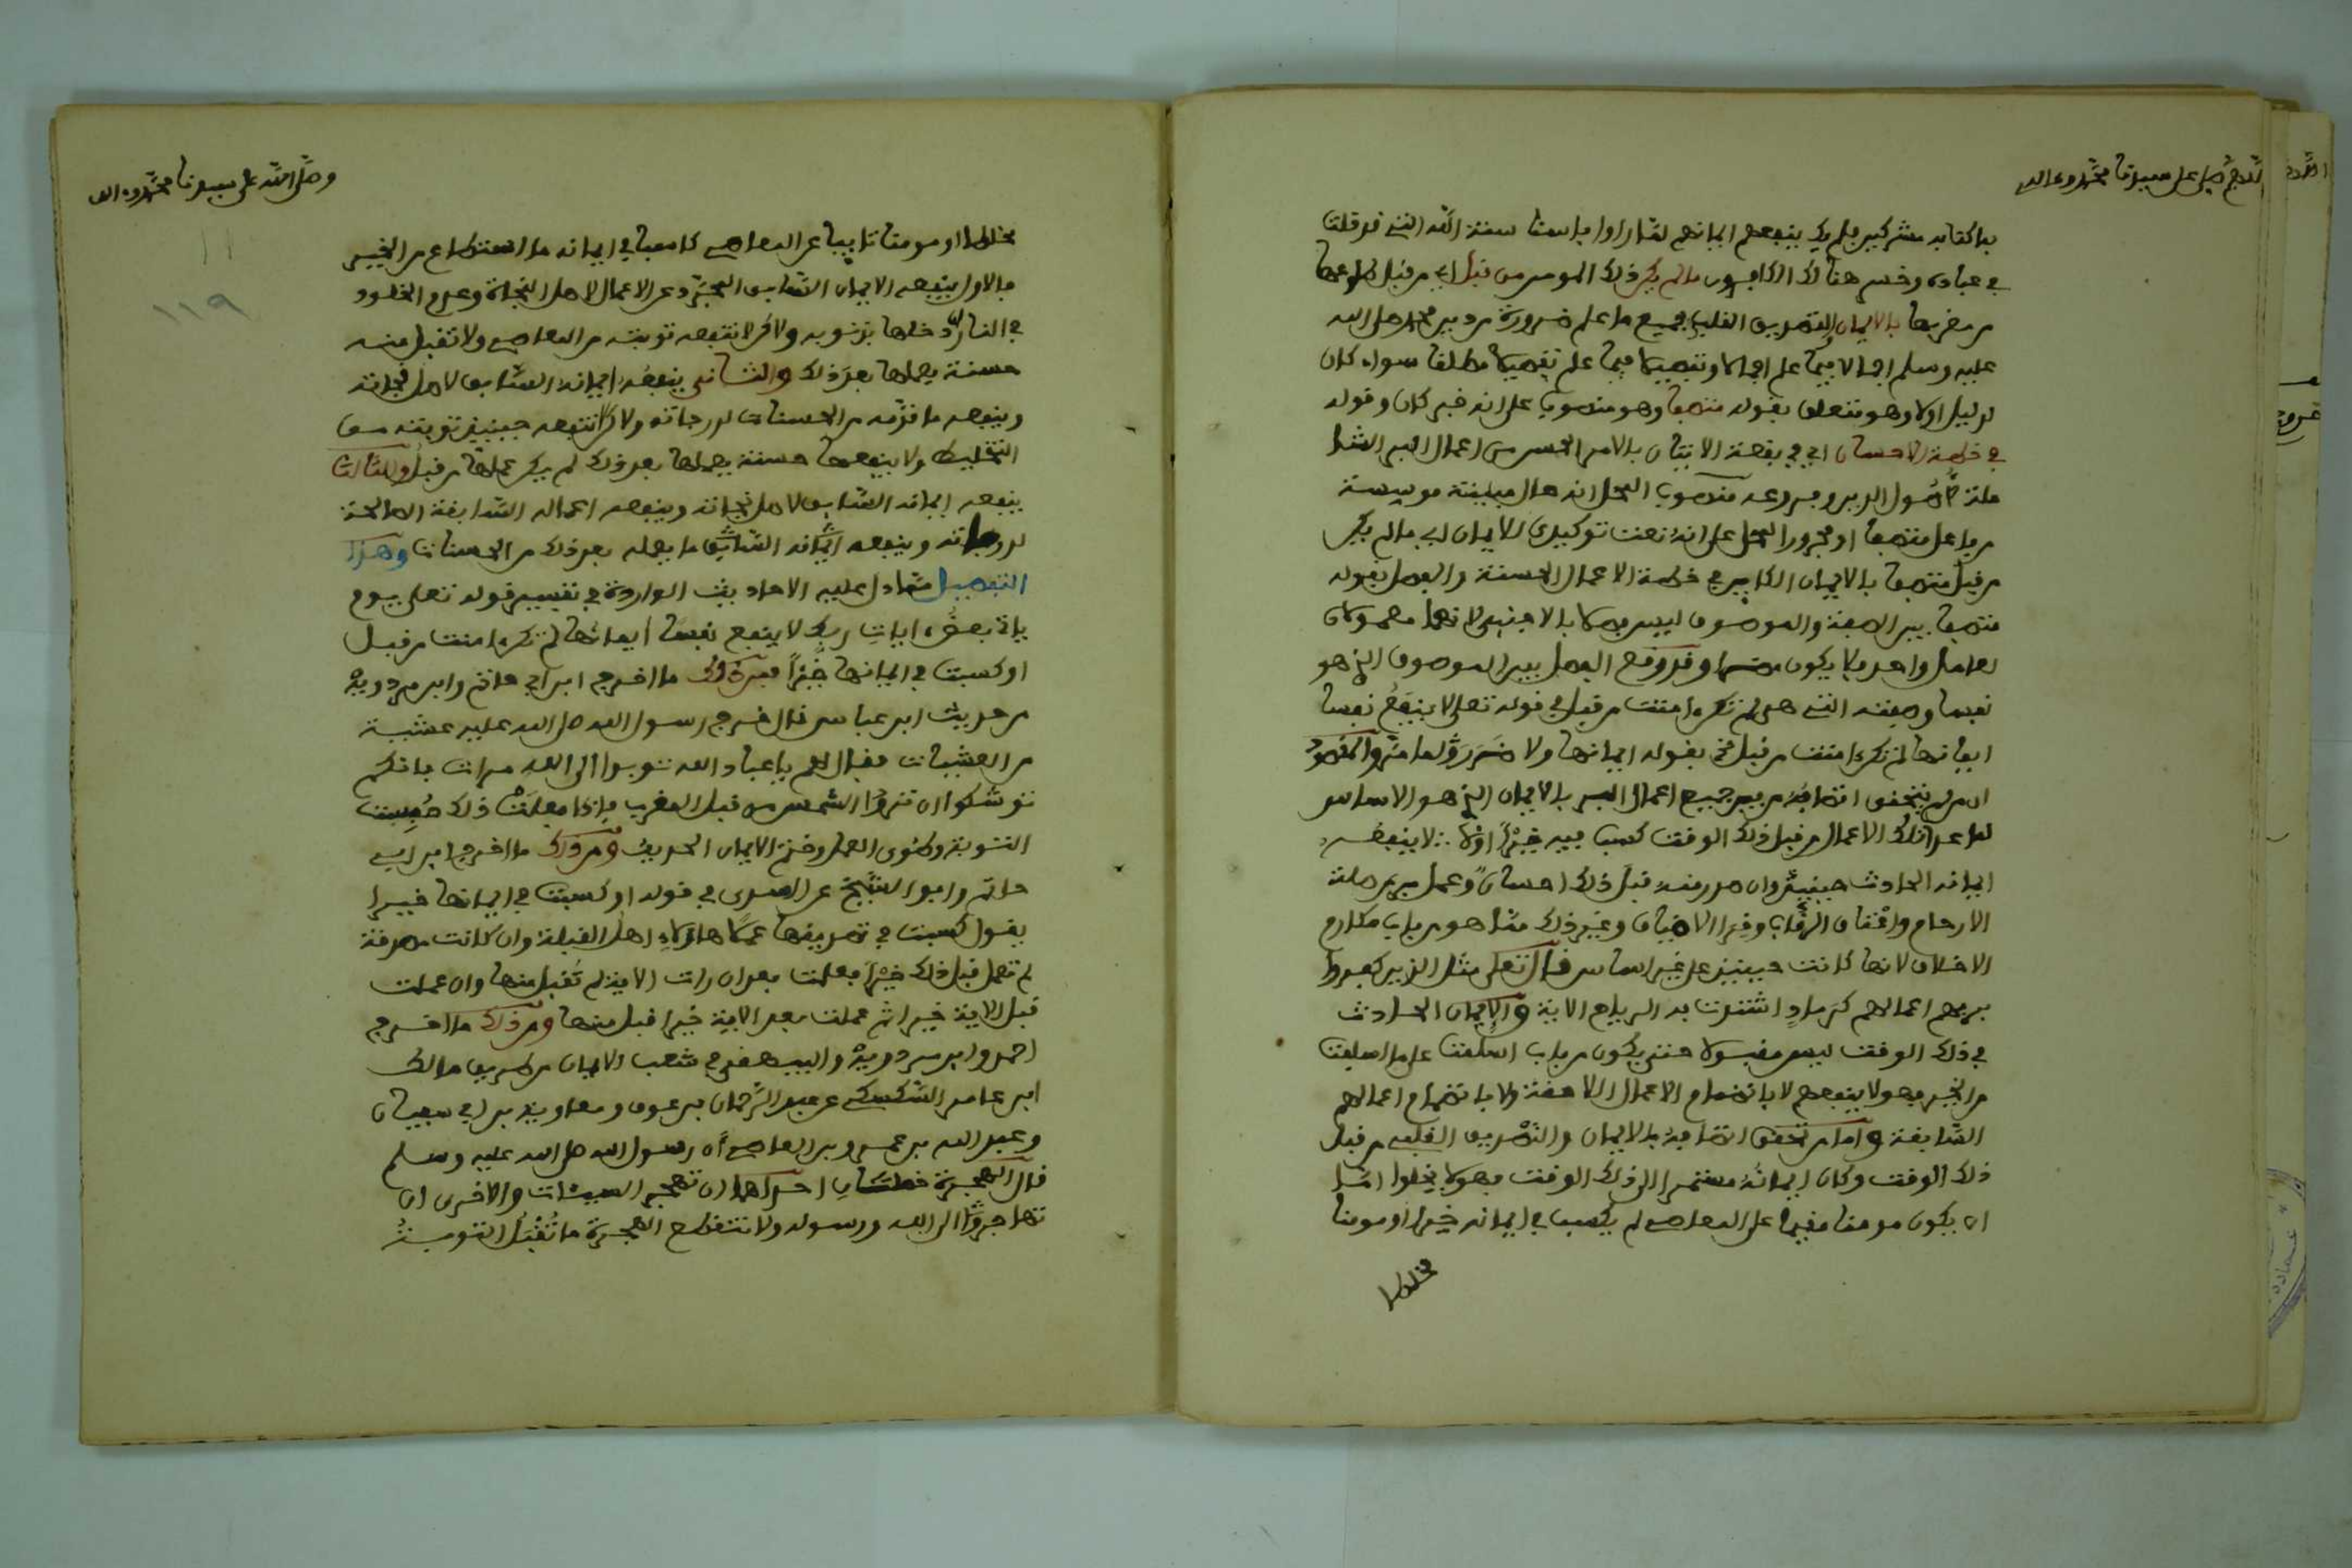 اللهم صل على سيدنا محمد وعلى اله
بما كنا به مشركين فلم يك ينفعهم ايمانهم لما راوا باسنا سنة الله التي قد خلت
في عباده وخسر هنالك الكافرون ما لم يكن ذلك المومن من قبل اي من قبل طلوعها
من مغربها بالايمان التصديق القلبي بجميع ما علم ضرورة من دين محمد صلى الله
عليه وسلم اجمالا فيما علم اجمالا وتفصيلا فيما علم تفصيلا مطلقا سواء كان
لدليل اولا وهو متعلق بقوله متصفا وهو منصوب على انه خبر كان وقوله
في خلعة الاحسان اي في بقعة الاتيان بالامر الحسن من اعمال البر الشا
ملة لاصول الدين وفروعه منصوب المحل انه حال مبينة موسسة
من فاعل متصفا او مجرور المحل على انه نعت توكيدي للايمان اي ما لم يكن
من قبل متصفا بالايمان الكاين في خلعة الاعمال الحسنة والفصل بقوله
متصفا بين الصفة والموصوف ليس فصلا بالاجنبي لانهما معمولان
لعامل واحد فلا يكون مضرا وقد وقع الفصل بين الموصوف الذي هو
نفسا وصفته التي هي لم تكن امنت من قبل في قوله تعلى لا ينفع نفسا
ايمانها لم تكن امنت من قبل بقوله ايمانها ولا ضرر ولما منه والمقصود
ان من لم يتحقق اتصافه من بين جميع اعمال البر بالايمان الذي هو الاساس
لما عداه من تلك الاعمال من قبل ذلك الوقت كسب فيه خيرا اولا لا ينفعه
ايمانه الحادث حينيذ وان صدر منه قبل ذلك احسان وعمل بر من صلة
الارحام واعتاق الرقاب وقرى الاضياف وغير ذلك مما هو من باب مكارم
الاخلاق لانها كانت حينيذ على غير اساس قال تعلى مثل الذين كفروا
بربهم اعمالهم كرماد اشتدت به الرياح الاية والايمان الحادث
في ذلك الوقت ليس مقبولا حتى يكون من باب اسلمت على ما اسلفت
من الخير فهو لا ينفعهم لا بانضمام الاعمال اللاحقة ولا بانضمام اعمالهم
السابقة واما من تحقق اتصافه بالايمان والتصديق القلبي من قبل
ذلك الوقت وكان ايمانه مستمرا الى ذلك الوقت فهو لا يخلوا اما
ان يكون مومنا مقيما على المعاصي لم يكسب في ايمانه خيرا او مومنا
مخلطا
وصلى الله على سيدنا محمد واله
١١
١١٩
مخلطا او مومنا تايبا عن المعاصي كاسبا في ايمانه ما استطاع من الخير
فالاول ينفعه الايمان السابق المجرد عن الاعمال لاصل النجاة وعدم الخلود
في النار ان دخلها بذنوبه ولاكن لا تنفعه توبته من المعاصي ولا تقبل منه
حسنة يعملها بعد ذلك والثاني ينفعه ايمانه السابق لاصل نجاته
وينفعه ما قدمه من الحسنات لدرجاته ولاكن لا تنفعه حينيذ توبته من
التخليط ولا ينفعه حسنة يعملها بعد ذلك لم يكن عملها من قبل والثالث
ينفعه ايمانه السابق لاصل نجاته وينفعه اعماله السابقة الصالحة
لدرجاته وينفعه ايمانه السابق ما يعمله بعد ذلك من الحسنات وهذا
التفصيل مما دل عليه الاحاديث الواردة في تفسير قوله تعلى يوم
ياتي بعض ايات ربك لا ينفع نفسا ايمانها لم تكن امنت من قبل
او كسبت في ايمانها خيرا فمن ذلك ما اخرج ابن ابي حاتم وابن مردويه
من حديث ابن عباس قال خرج رسول الله صلى الله عليه عشية
من العشيات فقال لهم يا عباد الله توبوا الى الله مرات فانكم
توشكوا ان تروا الشمس من قبل المغرب فاذا فعلت ذلك حبست
التوبة وطوي العمل وختم الايمان الحديث ومن ذلك ما اخرج ابن ابي
حاتم وابو الشيخ عن السدي في قوله او كسبت في ايمانها خيرا
يقول كسبت في تصديقها عملا هاؤلاء اهل القبلة وان كانت مصدقة
لم تعمل قبل ذلك خيرا فعملت بعد ان رات الاية لم تقبل منها وان عملت
قبل الاية خيرا ثم عملت بعد الاية خيرا قبل منها ومن ذلك ما اخرج
احمد وابن مردويه والبيهقي في شعب الايمان من طريق مالك
ابن عامر السكسكي عن عبد الرحمان بن عوف ومعاوية بن ابي سفيان
وعبد الله بن عمرو بن العاصي ان رسول الله صلى الله عليه وسلم
قال الهجرة خصلتان احداهما ان تهجر السيئات والاخرى ان
تهاجر الى الله ورسوله ولا تنقطع الهجرة ما تقبل التوبة